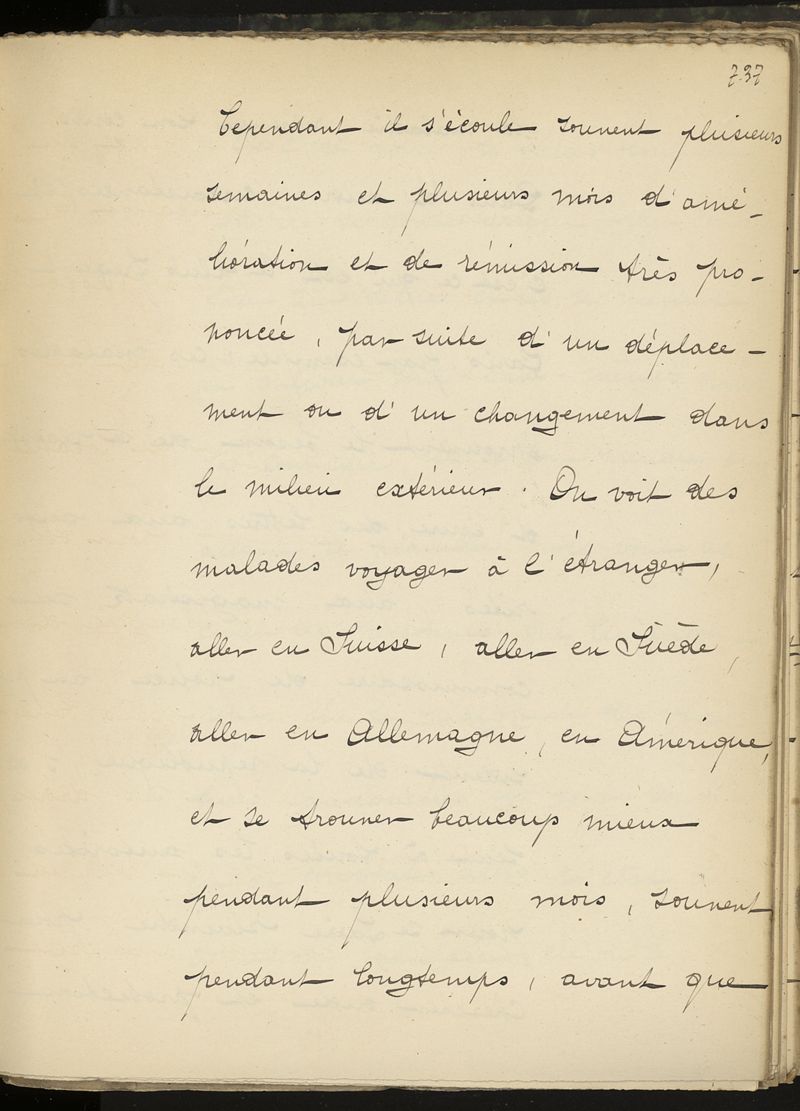 737
Cependant il s'écoule souvent plusieurs
semaines et plusieurs mois d'amé-
lioration et de rémission très pro-
noncée, par suite d'un déplace-
ment ou d'un changement dans
le milieu extérieur. On voit des
malades voyager à l'étranger,
aller en Suisse, aller en Suède,
aller en Allemagne, en Amérique,
et se trouver beaucoup mieux
pendant plusieurs mois, souvent
pendant longtemps, avant que